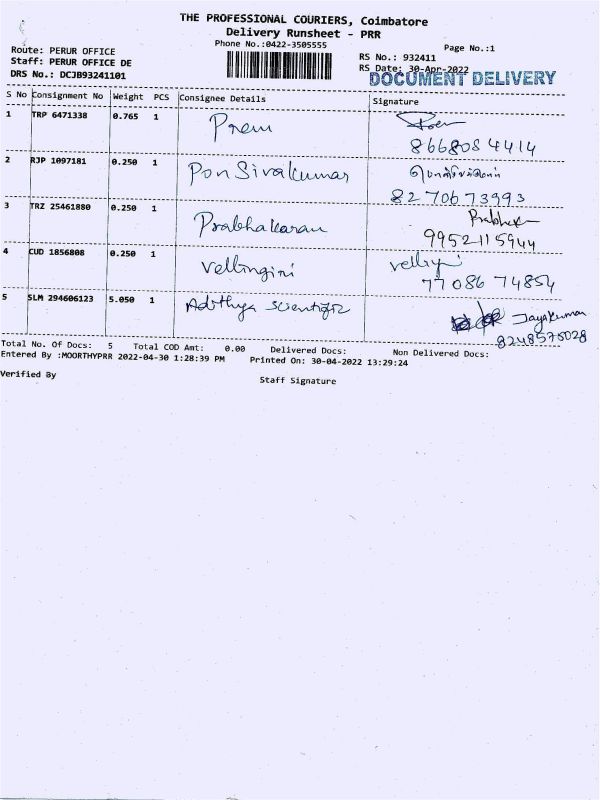 THE PROFESSIONAL COURIERS, Coimbatore
Delivery Runsheet - PRR
Phone No.:0422-3505555
Page No.:1
Route: PERUR OFFICE
RS No.: 932411
Staff: PERUR OFFICE DE
RS Date: 30-Apr-2022
DRS No.: DCJB93241101
DOCUMENT DELIVERY
S No Consignment No Weight PCS Consignee Details Signature
1 TRP 6471338 0.765 1 Prem
8668084414
2 RJP 1097181 0.250 1 Pon Sivakumar
8270673993
3 TRZ 25461880 0.250 1 Prabhakaran
9952115944
4 CUD 1856808 0.250 1 Vellingiri
77086 74854
5 SLM 294606123 5.050 1 Adithya Scientific Jayakumar
8248575028
Total No. Of Docs: 5 Total COD Amt: 0.00 Delivered Docs: Non Delivered Docs:
Entered By :MOORTHYPRR 2022-04-30 1:28:39 PM Printed On: 30-04-2022 13:29:24
Verified By
Staff Signature